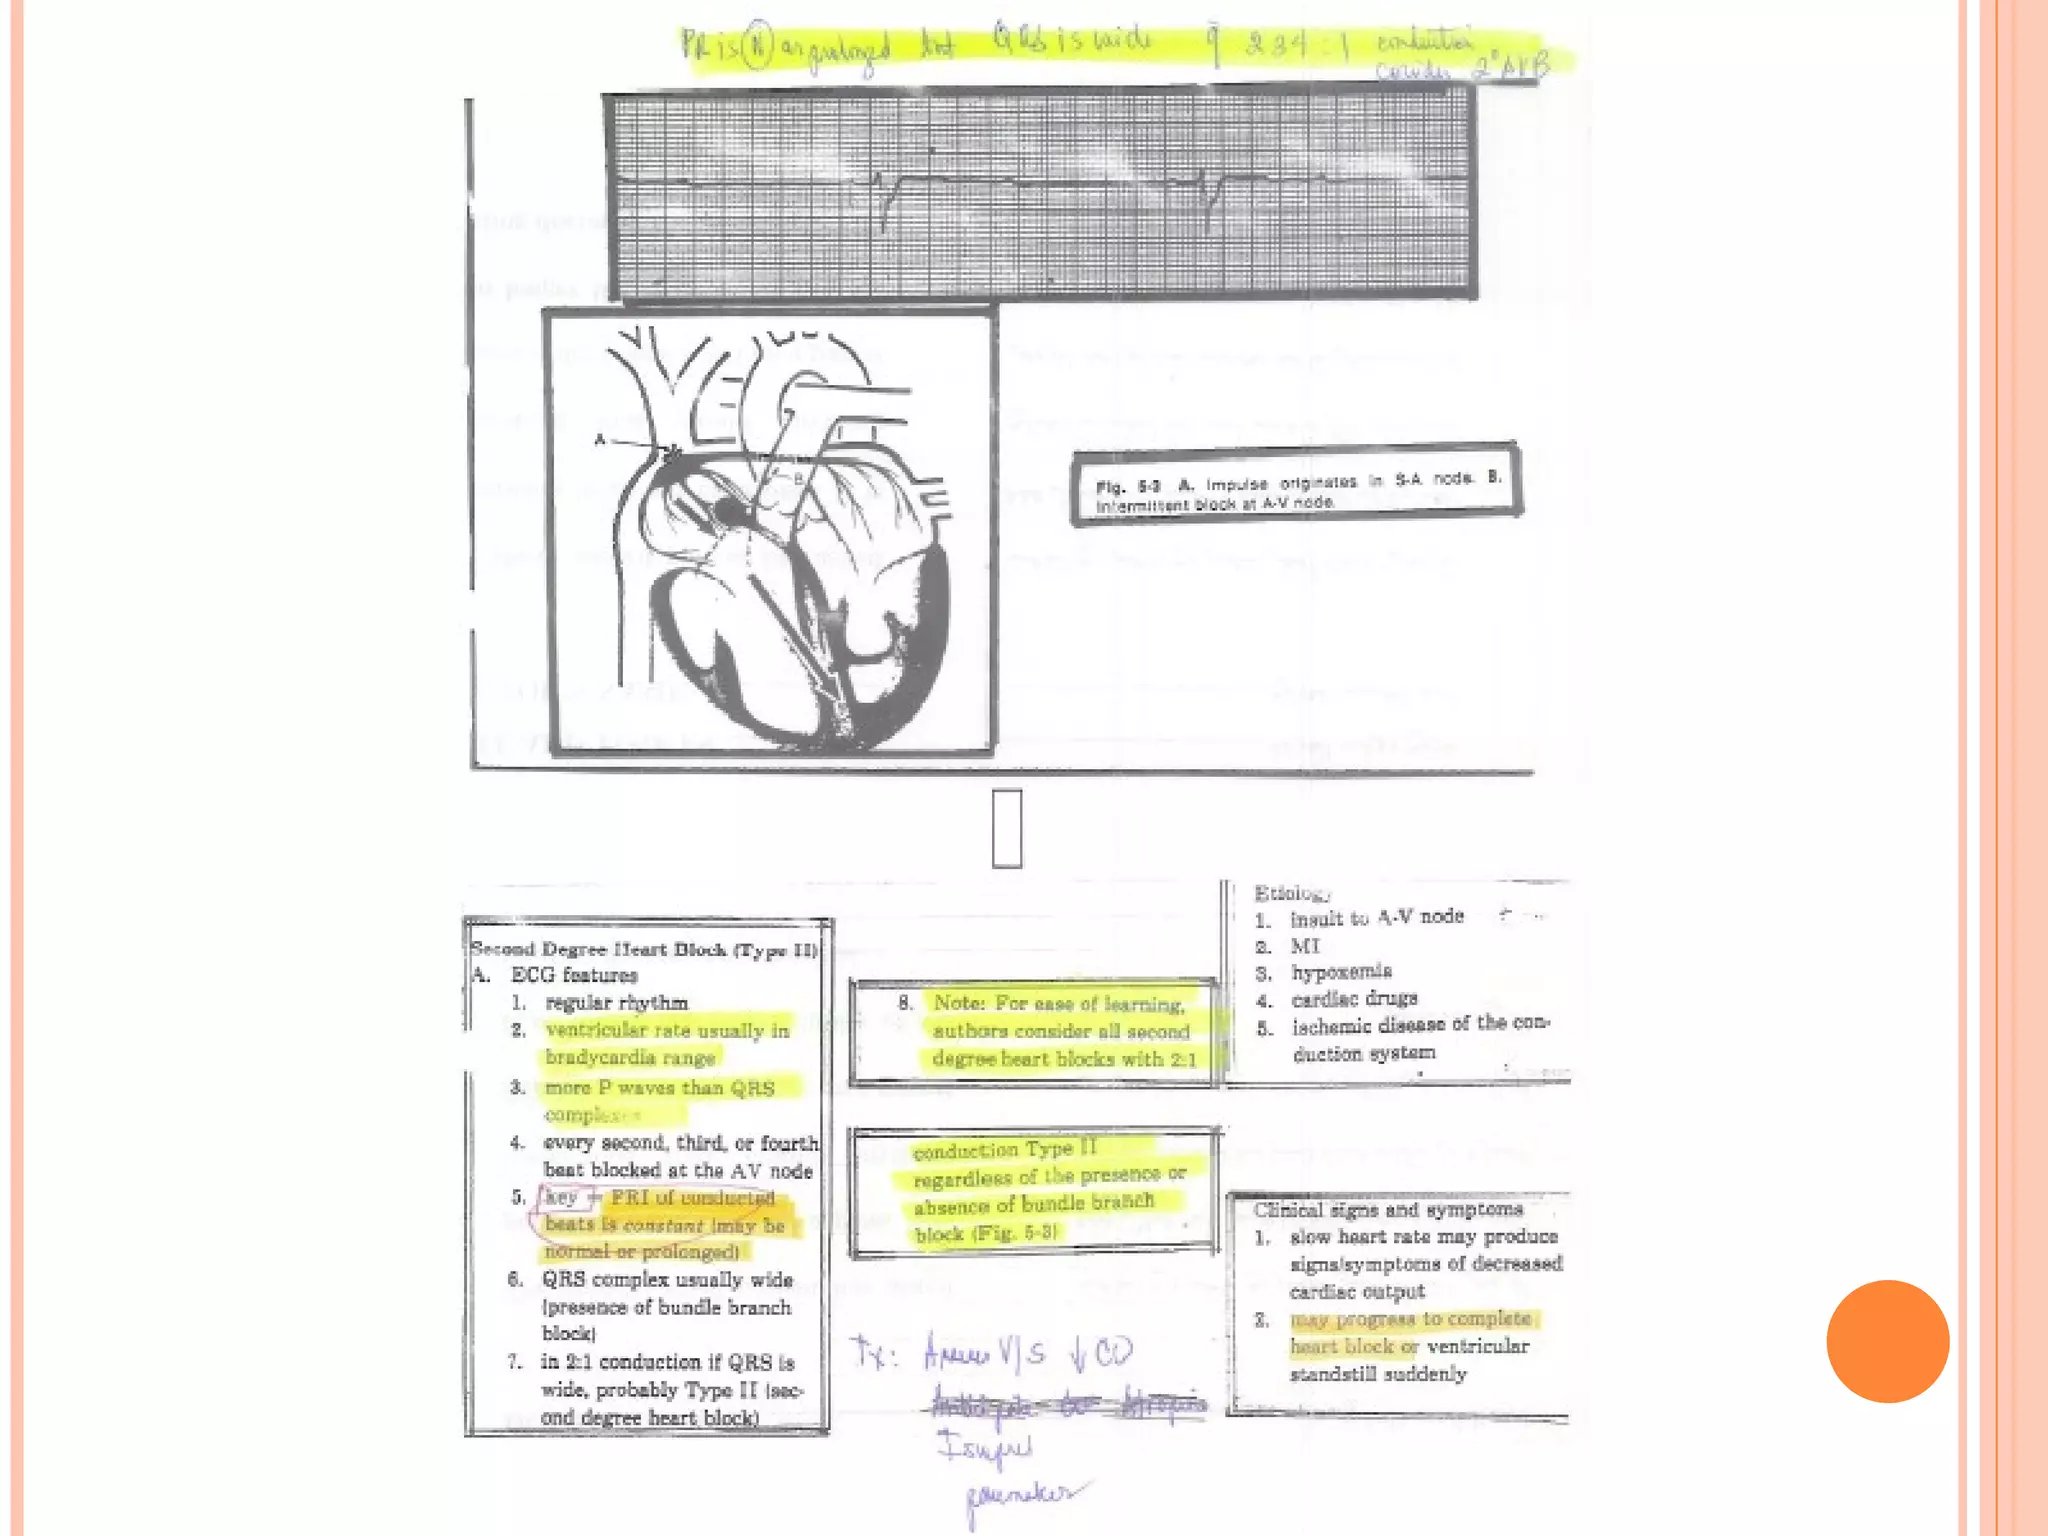 PR is N or prolonged but QRS is wide 2 3 4 : 1 conduction
consider 2° AVB
A
B
Fig. 5-3 A. Impulse originates in S-A node. B.
Intermittent block at A-V node.
Second Degree Heart Block (Type II)
A. ECG features
1. regular rhythm
2. ventricular rate usually in
bradycardia range
3. more P waves than QRS
complexes
4. every second, third, or fourth
beat blocked at the AV node
5. key = PRI of conducted
beats is constant (may be
normal or prolonged)
6. QRS complex usually wide
(presence of bundle branch
block)
7. in 2:1 conduction if QRS is
wide, probably Type II (sec-
ond degree heart block)
8. Note: For ease of learning,
authors consider all second
degree heart blocks with 2:1
conduction Type II
regardless of the presence or
absence of bundle branch
block (Fig. 5-3)
Tx: Assess V/S ↓ CO
Isuprel
pacemaker
Etiology
1. insult to A-V node
2. MI
3. hypoxemia
4. cardiac drugs
5. ischemic disease of the con-
duction system
Clinical signs and symptoms
1. slow heart rate may produce
signs/symptoms of decreased
cardiac output
2. may progress to complete
heart block or ventricular
standstill suddenly